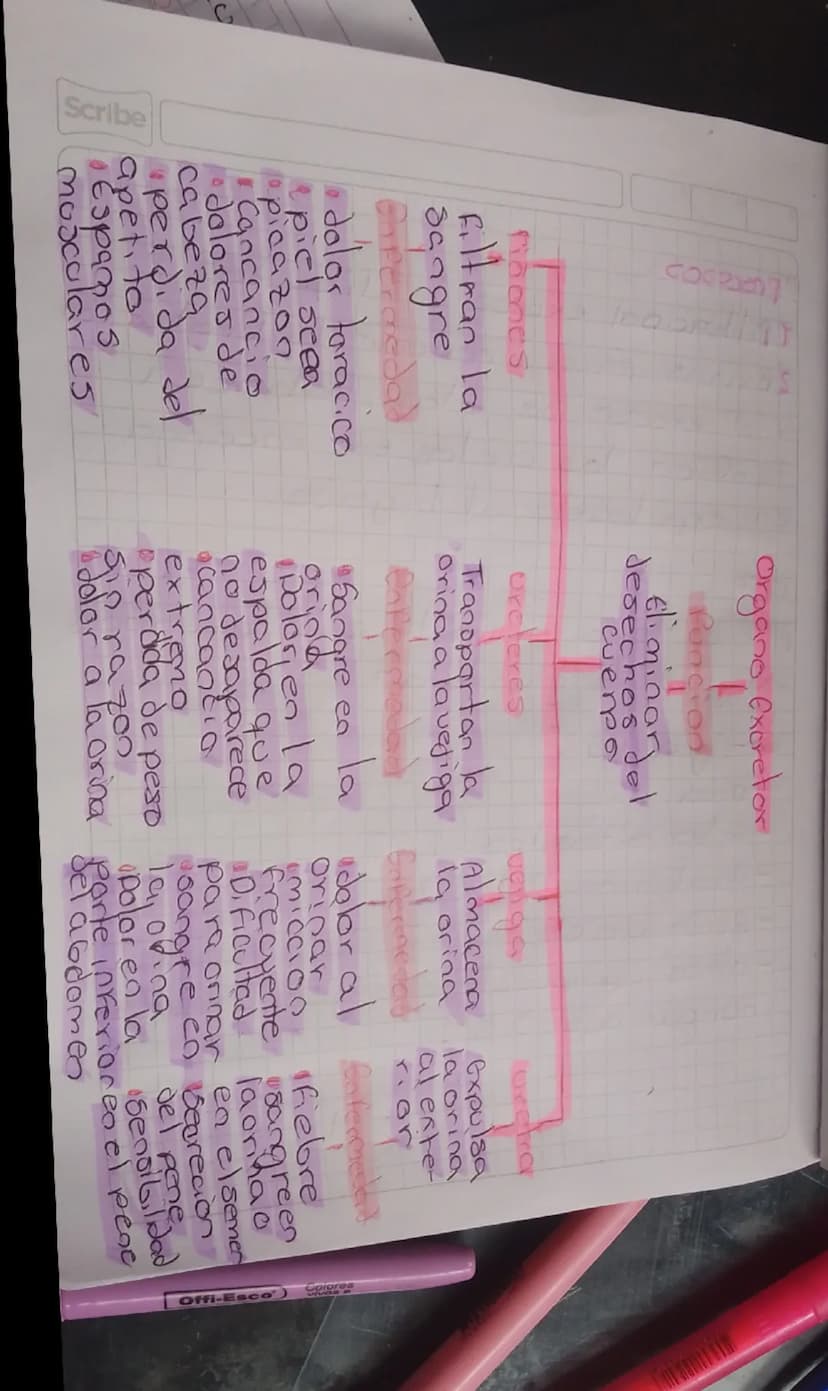 Organo Excretor
Funcion
Eliminar
desechos del
cuerpo
Riñones
Filtran la
sangre
Enfermedad
dolor toracico
piel seca
picazon
Cancancio
dolores de
cabeza
perdida del
apetito
Espamos
mosculares
Ureteres
Transportan la
orina a la vegiga
Enfermedad
Sangre en la
orina
Dolor en la
espalda que
no desaparece
cancancio
extremo
perdida de peso
sin razon
dolor a la orina
vegiga
Almacena
la orina
Enfermedad
dolor al
orinar
miccion
frecuente
Dificultad
para orinar
sangre en
la orina
Dolor en la
parte inferior
del abdomen
uretra
Expulsa
la orina
al exte-
rior
Enfermedad
Fiebre
sangre en
la orina o
en el semen
Secrecion
del pene
sensibilidad
en el pene
Scribe
Offi-Esco
Colores